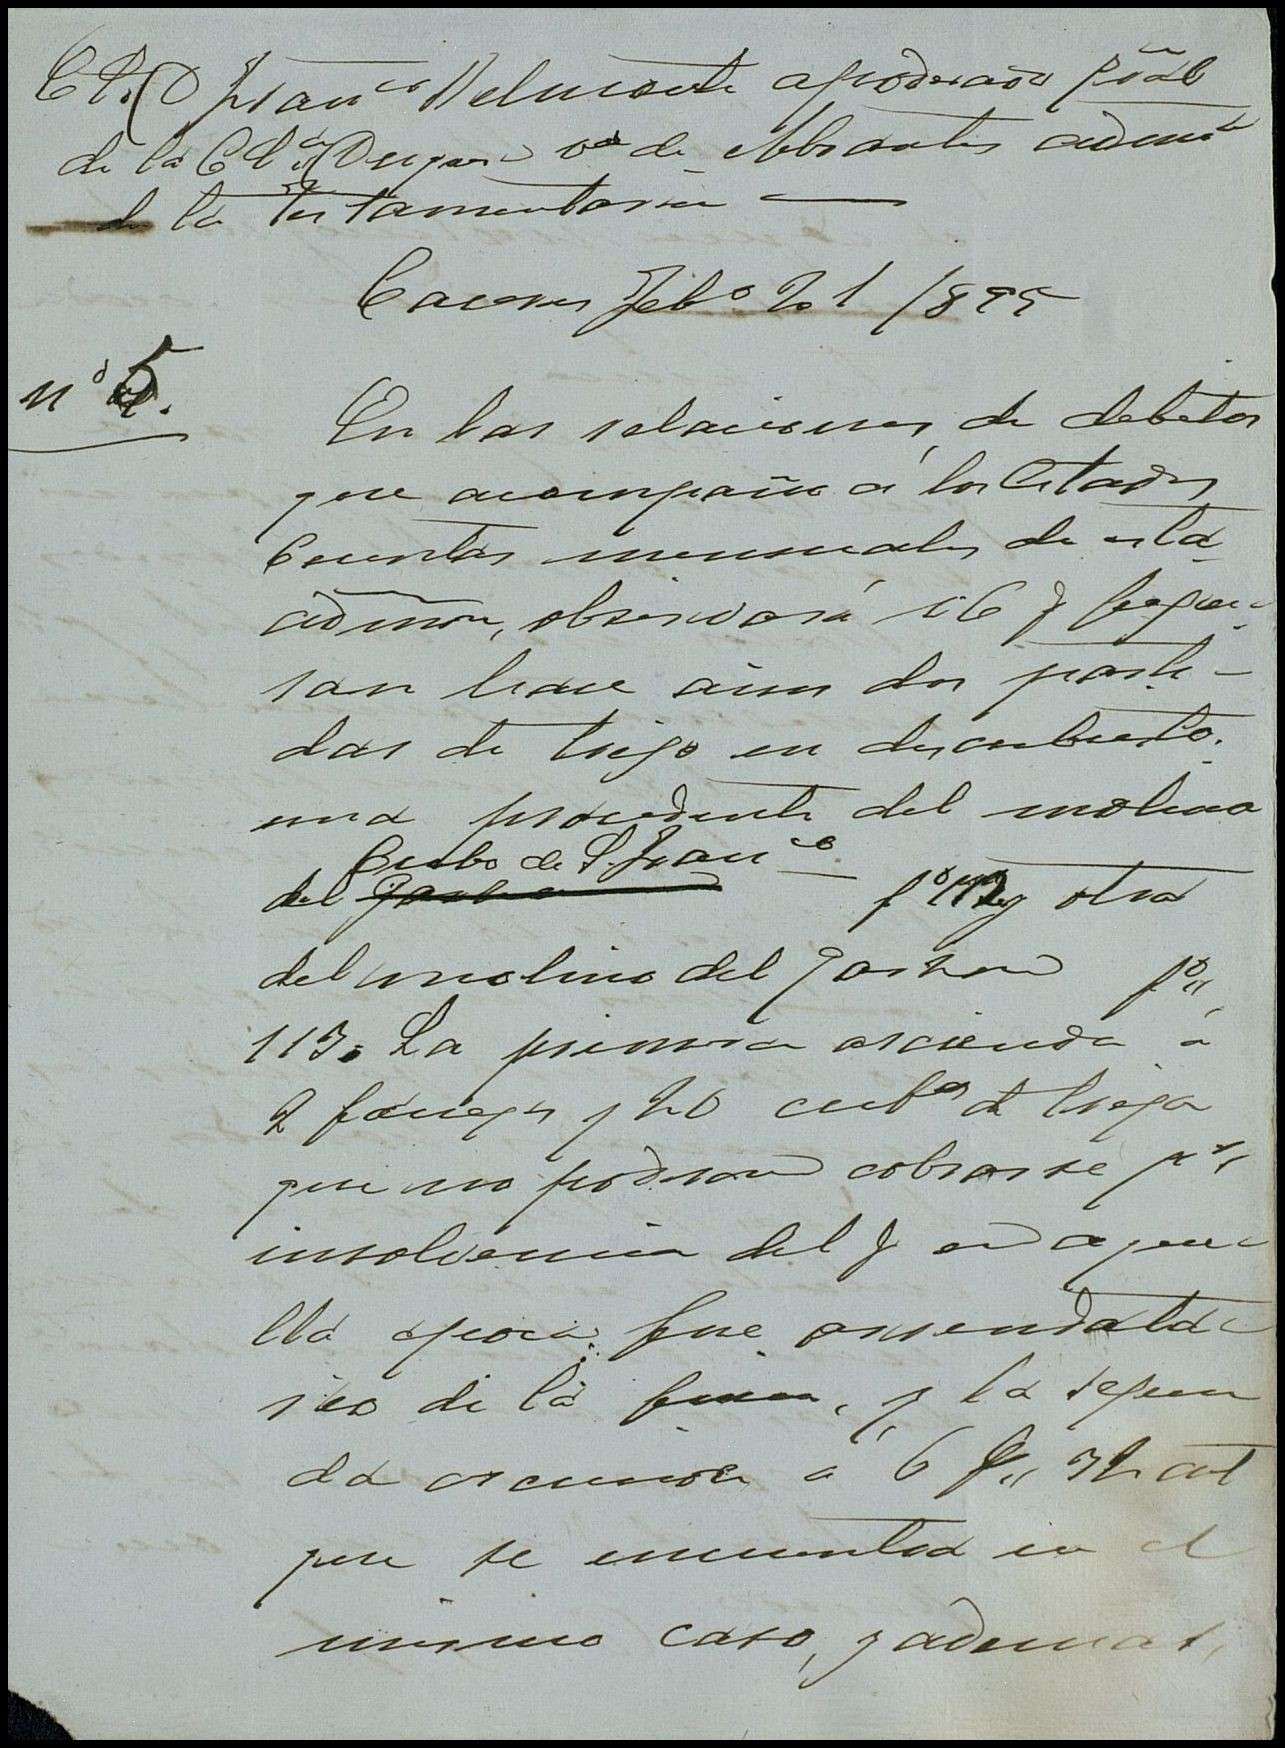 E. S. D. Franco Belmonte apoderado pral
de la E. S.a Duquesa v.da de Abrantes admora
de la testamentaria
Caceres Feb.o 21 /895
N.o 5.
En las relaciones, de debitos
que acompaño á los Estados
Cuentas mensuales de esta
admon, observará V. E. q figu-
ran hace años dos parti-
das de trigo en descubierto.
una procedente del molino
Cubo de S. Fran.co
del f.o 112 y otra
del molino del Jason f.o
113. La primera asciende á
2 fanegas y 20 cub.s de trigo
que no podran cobrarse p.r
insolvencia del q en aque-
lla epoca, fue arrendata-
rio de la finca, y la segun
da asciende á 6 f.s cul
que se encuentra en el
mismo caso, y ademas,